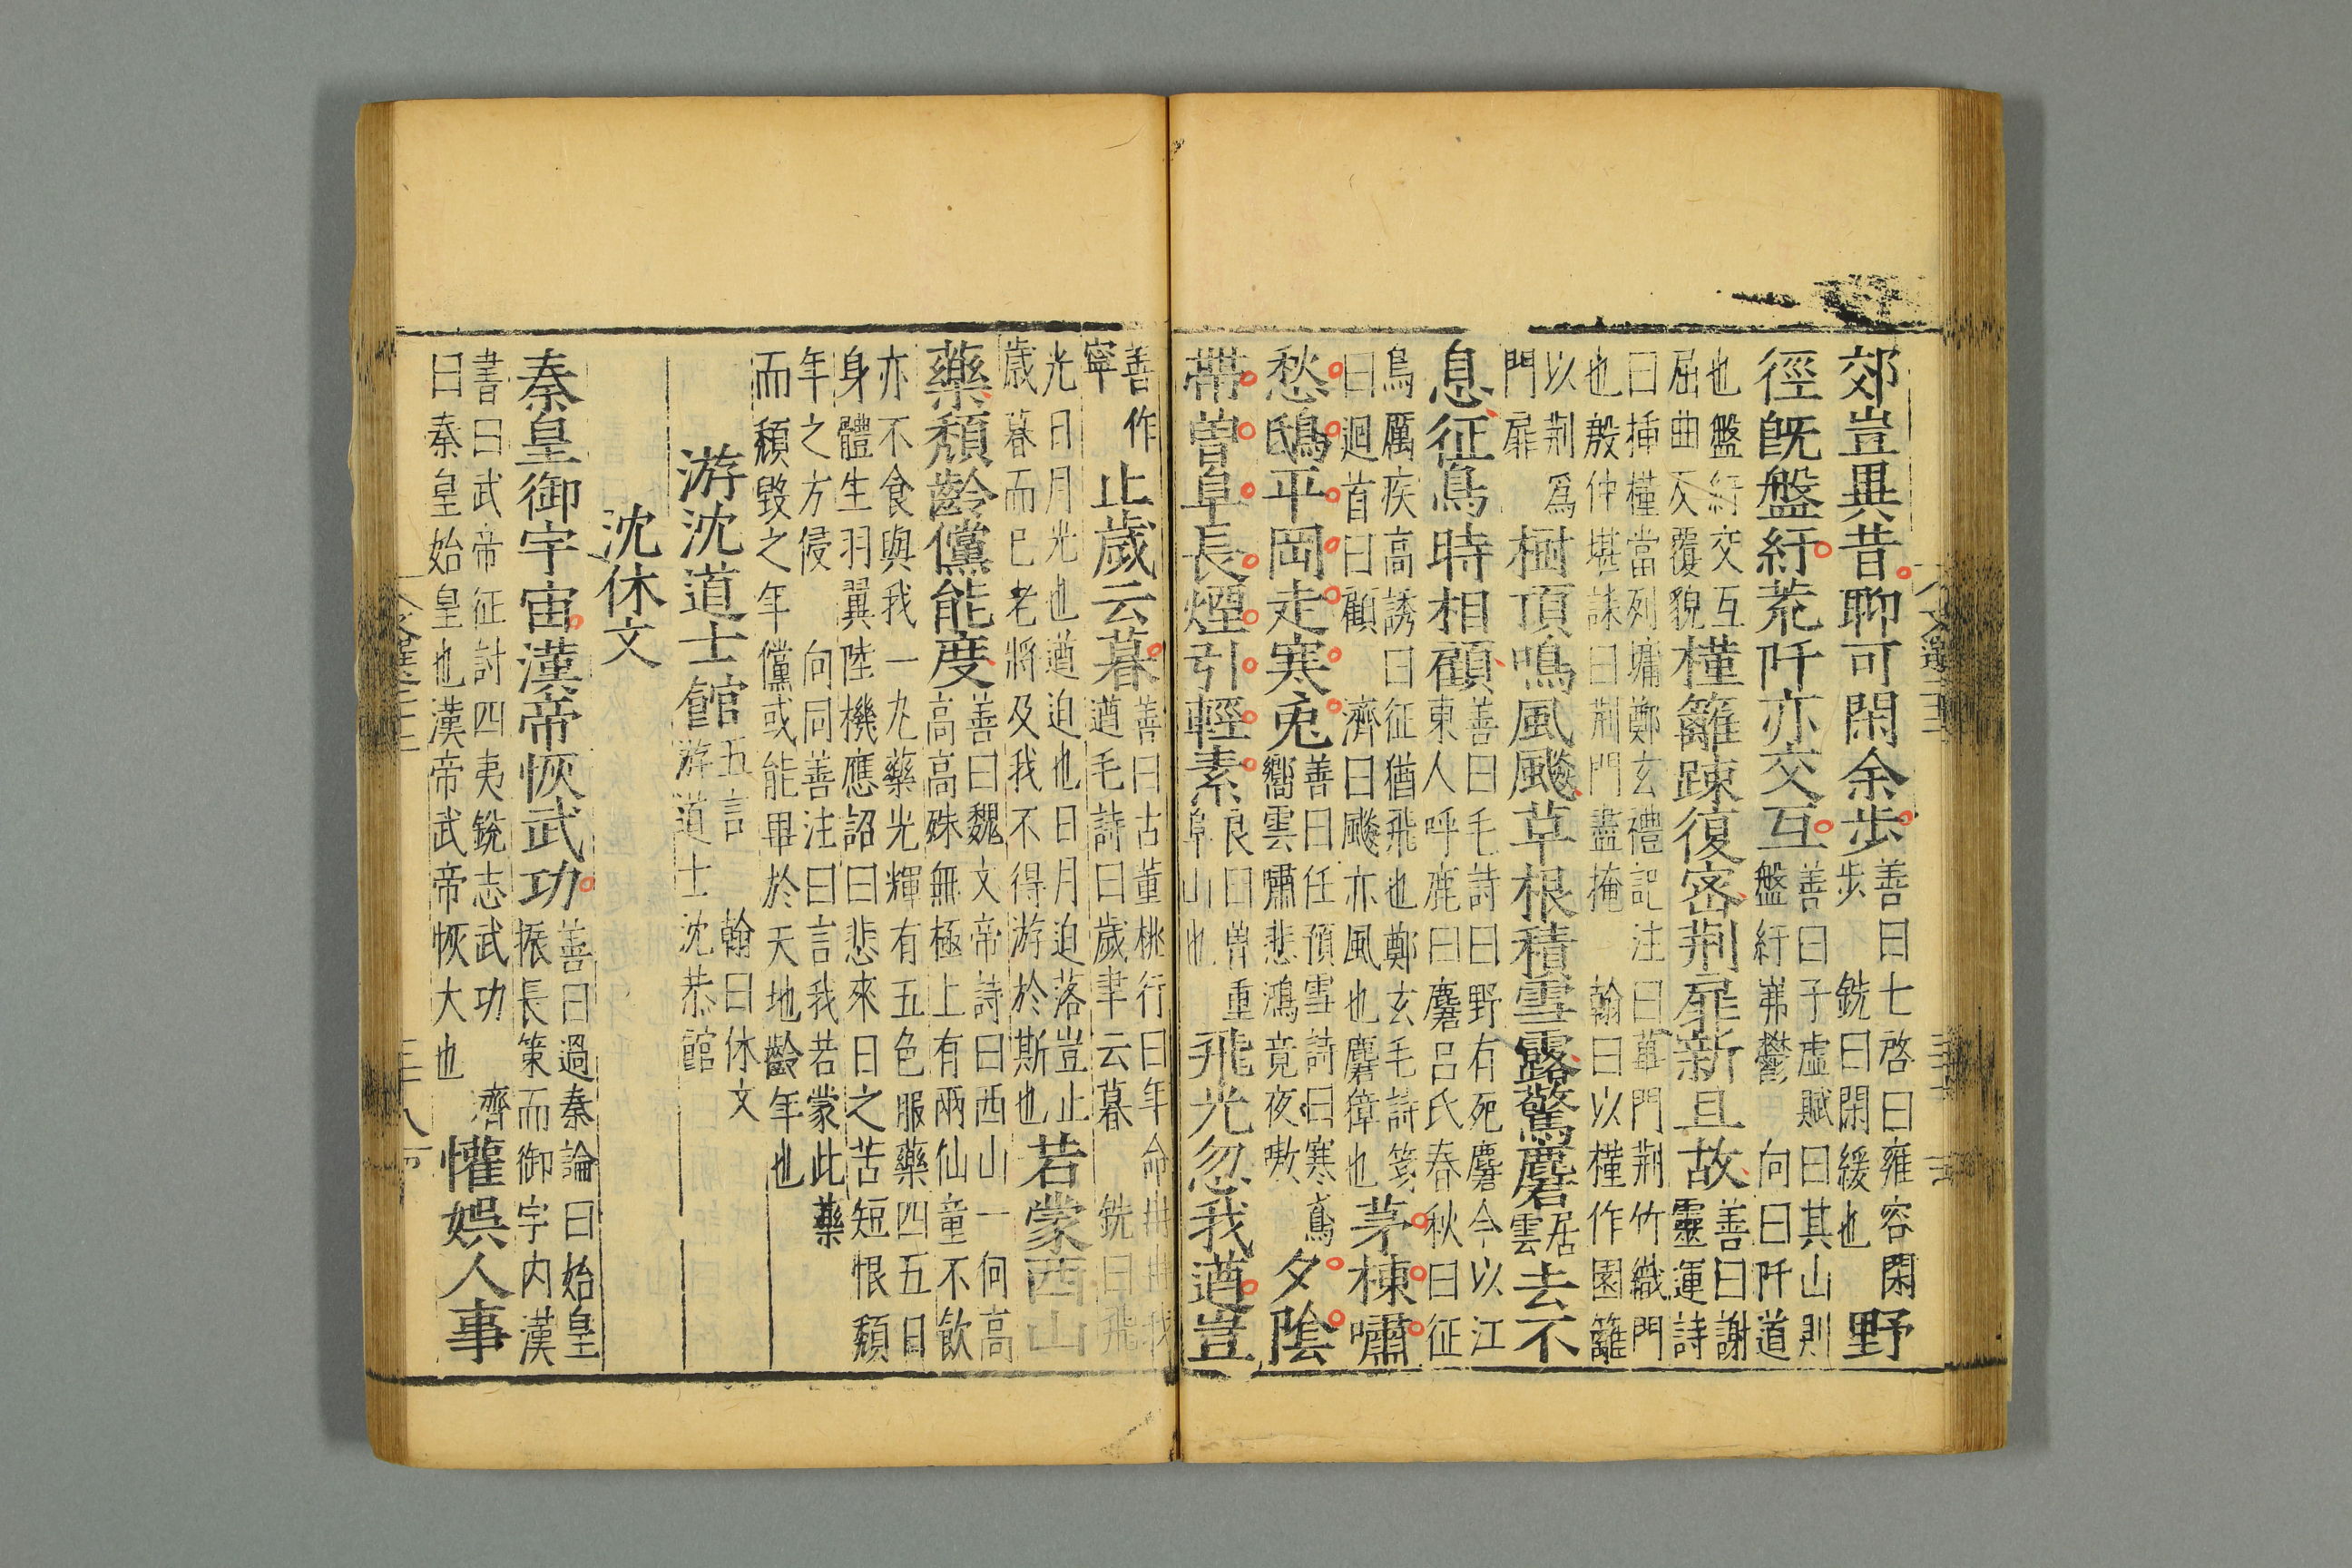 郊豈異昔聊可閑余步
善曰七啓曰雍容閑
步 銑曰閑緩也
野
徑旣盤紆荒阡亦交互
善曰子虛賦曰其山則
盤紆岪鬱 向曰阡道
也盤紆交互
屈曲反覆貌
槿籬疎復密荆扉新且故
善曰謝
靈運詩
曰揷槿當列墉鄭玄禮記注曰蓽門荆竹織門
也殷仲堪誄曰荆門盡掩 翰曰以槿作園籬
以荆爲
門扉
樹頂鳴風飇草根積雪露驚麏
居
雲
去不
息征鳥時相顧
善曰毛詩曰野有死麏今以江
東人呼鹿曰麏吕氏春秋曰征
鳥厲疾高誘曰征猶飛也鄭玄毛詩箋
曰迴首曰顧 濟曰飇亦風也麏獐也
茅棟嘯
愁鴟平岡走寒兔
善曰任預雪詩曰寒鳶
嚮雲嘯悲鴻竟夜嗷
夕陰
帶曾阜長煙引輕素
良曰曾重
阜山也
飛光忽我遒豈
善作
寧
止歲云暮
善曰古董桃行曰年命冉冉我
遒毛詩曰歲聿云暮 銑曰飛
光日月光也遒迫也日月迫落豈止
歲暮而已老將及我不得游於斯也
若蒙西山
藥頹齡儻能度
善曰魏文帝詩曰西山一何高
高高殊無極上有兩仙童不飲
亦不食與我一丸藥光輝有五色服藥四五日
身體生羽翼陸機應詔曰悲來日之苦短恨頹
年之方侵 向同善注曰言我若蒙此藥
而頹毀之年儻或能畢於天地齡年也
游沈道士館
五言 翰曰休文
游道士沈恭館
沈休文
秦皇御宇宙漢帝恢武功
善曰過秦論曰始皇
振長策而御宇内漢
書曰武帝征討四夷銳志武功 濟
曰秦皇始皇也漢帝武帝恢大也
懽娛人事